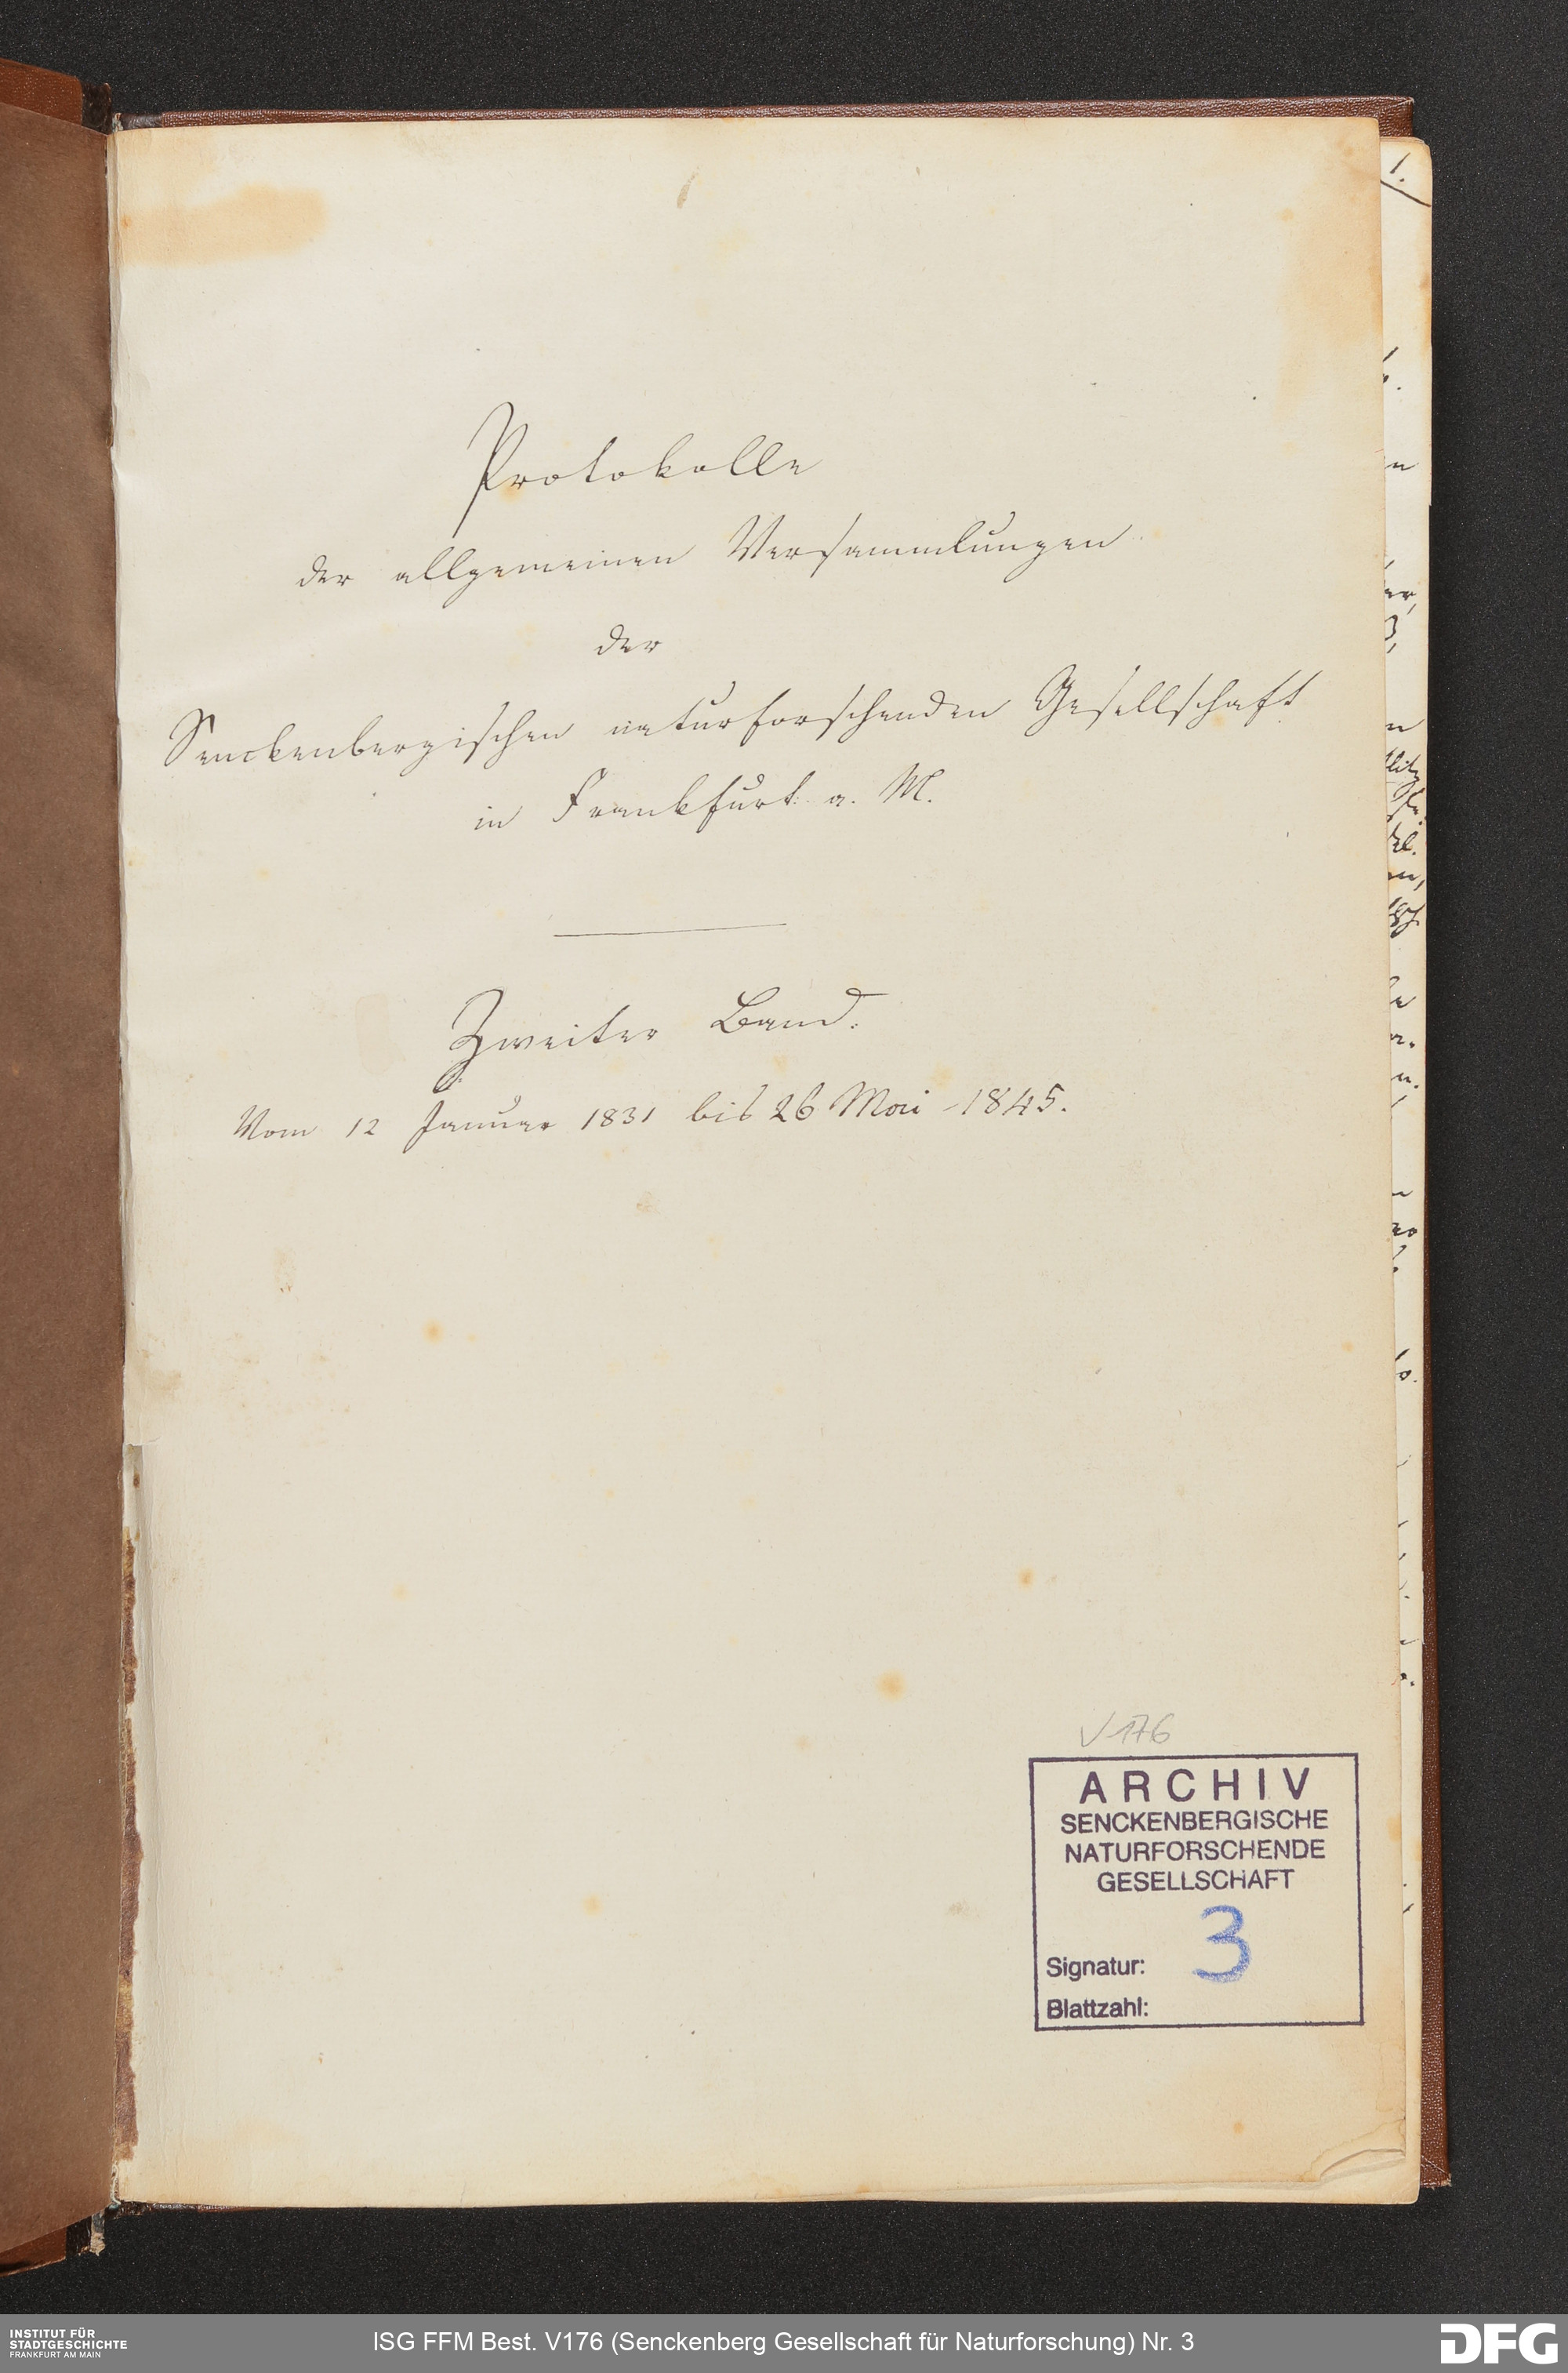 Protokolle
der allgemeinen Versammlungen
der
Senckenbergischen naturforschenden Gesellschaft
in Frankfurt a. M.
Zweiter Band.
Vom 12 Januar 1831 bis 26 Mai 1845.
1.
V 176
ARCHIV
SENCKENBERGISCHE
NATURFORSCHENDE
GESELLSCHAFT
Signatur: 3
Blattzahl:
INSTITUT FÜR
STADTGESCHICHTE
FRANKFURT AM MAIN
ISG FFM Best. V176 (Senckenberg Gesellschaft für Naturforschung) Nr. 3
DFG